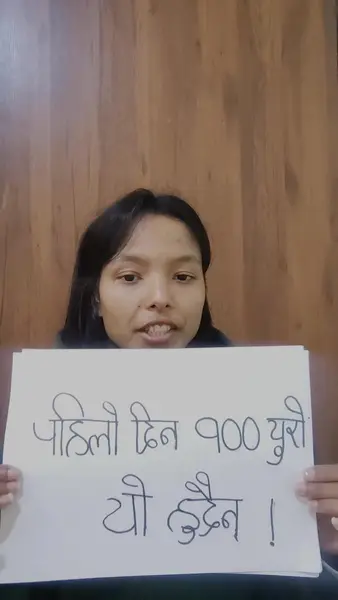 पहिलो दिन १०० युरो
यो हुदैन !